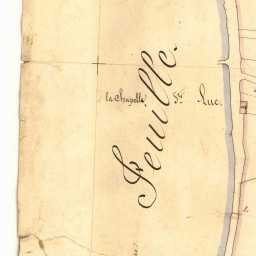 Feuille.
la Chapelle St. Luc.